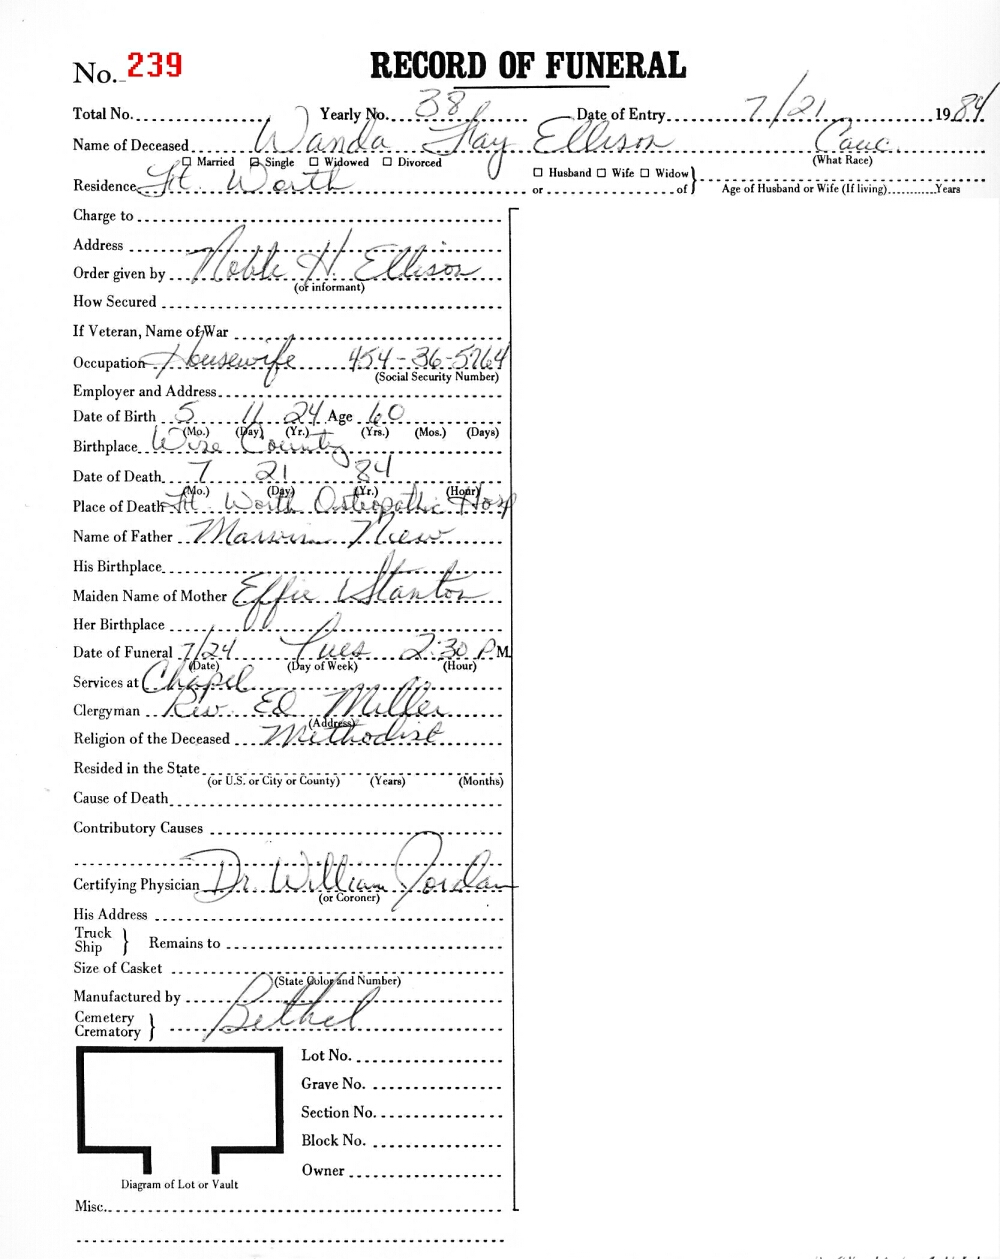 No. 239 RECORD OF FUNERAL
Total No. Yearly No. 38 Date of Entry 7/21 1984
Name of Deceased Wanda Fay Ellison Cauc.
☐ Married ☒ Single ☐ Widowed ☐ Divorced (What Race)
Residence Ft. Worth ☐ Husband ☐ Wife ☐ Widow
or of } Age of Husband or Wife (If living) Years
Charge to
Address
Order given by Noble H. Ellison
(or informant)
How Secured
If Veteran, Name of War
Occupation Housewife 454-36-5764
(Social Security Number)
Employer and Address
Date of Birth 5 11 24 Age 60
(Mo.) (Day) (Yr.) (Yrs.) (Mos.) (Days)
Birthplace Wise County
Date of Death 7 21 84
(Mo.) (Day) (Yr.) (Hour)
Place of Death Ft. Worth Osteopathic Hosp
Name of Father Marvin
His Birthplace
Maiden Name of Mother Effie Stanton
Her Birthplace
Date of Funeral 7/24 Tues 2:30 P M.
(Date) (Day of Week) (Hour)
Services at Chapel
Clergyman Rev. Ed Miller
(Address)
Religion of the Deceased Methodist
Resided in the State
(or U.S. or City or County) (Years) (Months)
Cause of Death
Contributory Causes
Certifying Physician Dr. William Jordan
(or Coroner)
His Address
Truck
Ship } Remains to
Size of Casket
(State Color and Number)
Manufactured by
Cemetery
Crematory } Bethel
Lot No.
Grave No.
Section No.
Block No.
Owner
Diagram of Lot or Vault
Misc.